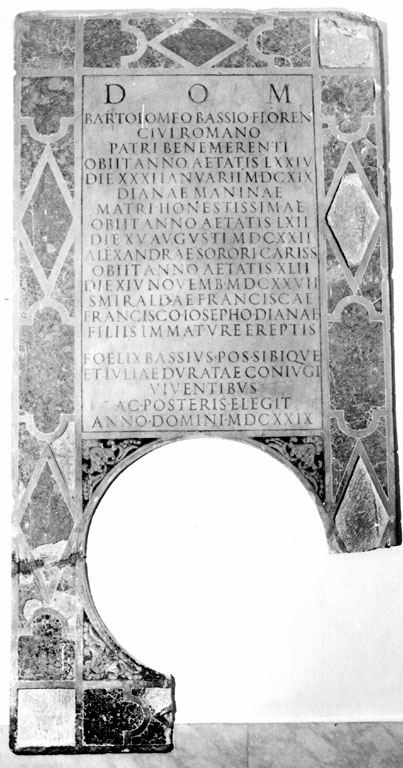 D O M
BARTOLOMEO BASSIO FLOREN
CIVI ROMANO
PATRI BENEMERENTI
OBIIT ANNO AETATIS LXXIV
DIE XXXI IANVARII MDCXIX
DIANAE MANINAE
MATRI HONESTISSIMAE
OBIIT ANNO AETATIS LXII
DIE XV AVGVSTI MDCXXII
ALEXANDRAE SORORI CARISS
OBIIT ANNO AETATIS XLII
DIE XIV NOVEMB MDCXXVII
SMIRALDAE FRANCISCAE
FRANCISCO IOSEPHO DIANAE
FILIIS IMMATVRE EREPTIS
FOELIX BASSIVS·POS·SIBIQVE
ET IVLIAE DVRATAE CONIVGI
VIVENTIBVS
AC·POSTERIS·ELEGIT
ANNO·DOMINI·MDCXXIX